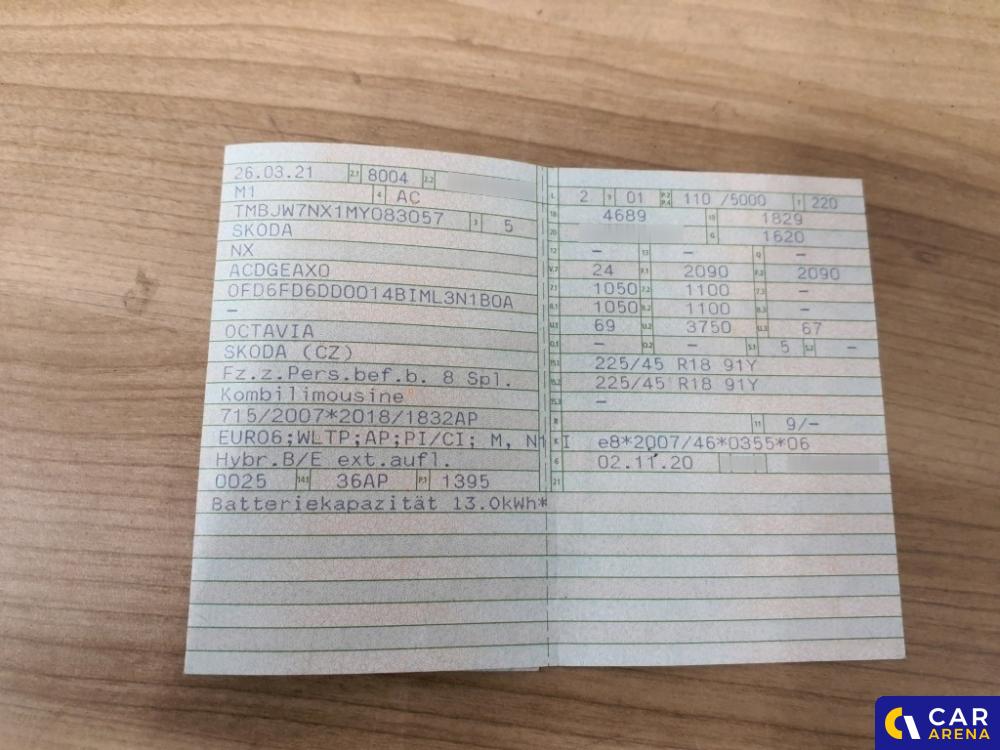 26.03.21 2.1 8004 2.2
M1 4 AC
TMBJW7NX1MY083057 3 5
SKODA
NX
ACDGEAX0
0FD6FD6DD0014BIML3N1B0A
–
OCTAVIA
SKODA (CZ)
Fz.z.Pers.bef.b. 8 Spl.
Kombilimousine
715/2007*2018/1832AP
EURO6;WLTP;AP;PI/CI; M, N1 I
Hybr.B/E ext.aufl.
0025 14.1 36AP P.1 1395
Batteriekapazität 13.0kWh*
L 2 9 01 P.2 P.4 110 /5000 T 220
18 4689 19 1829
20 G 1620
12 – 13 – Q –
V.7 24 F.1 2090 F.2 2090
7.1 1050 7.2 1100 7.3 –
8.1 1050 8.2 1100 8.3 –
U.1 69 U.2 3750 U.3 67
O.1 – O.2 – S.1 5 S.2 –
15.1 225/45 R18 91Y
15.2 225/45 R18 91Y
15.3 –
R 11 9/–
K e8*2007/46*0355*06
6 02.11.20
21
CAR
ARENA